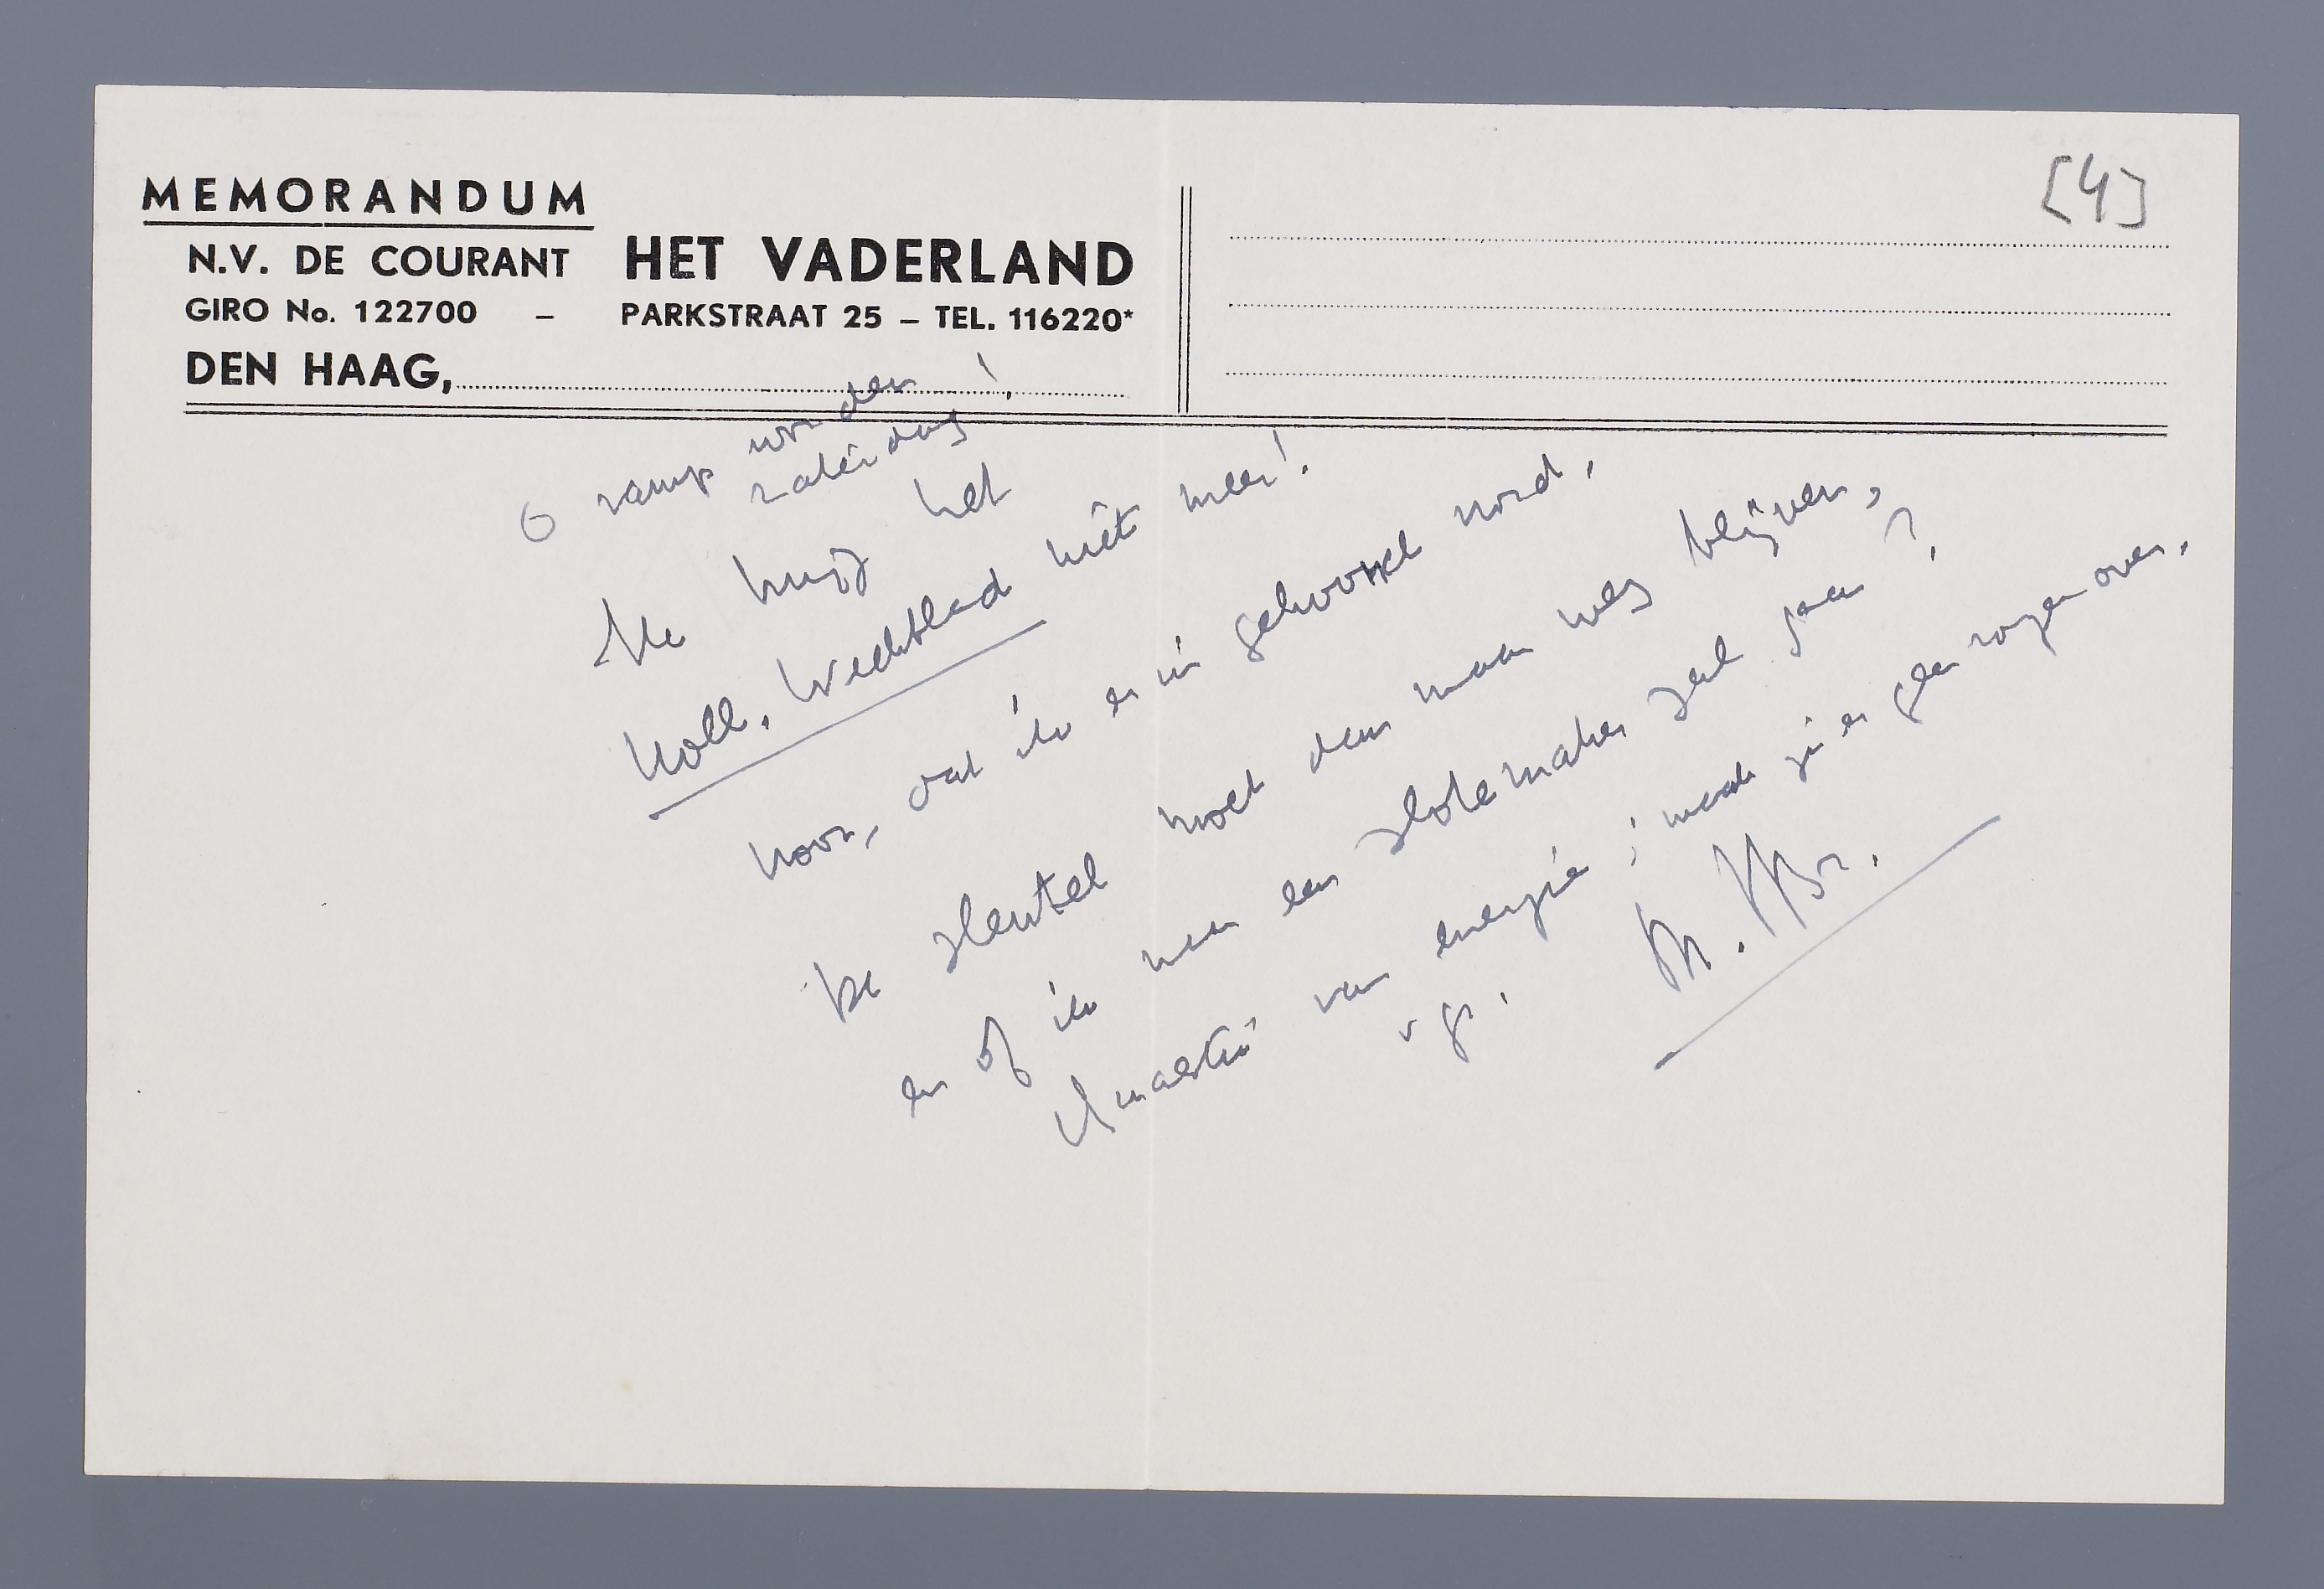 MEMORANDUM
N.V. DE COURANT HET VADERLAND
GIRO No. 122700 – PARKSTRAAT 25 – TEL. 116220*
DEN HAAG,
[4]
O ramp van den
zaterdag!
Ik krijg het
Holl. Weekblad niet meer!
Hoor, dat ik er in word.
De sleutel moet dan maar weg blijven,
en of ik naar een slotemaker zal gaan?
Quaestie van energie; maak je er geen zorgen over.
M.tBr.